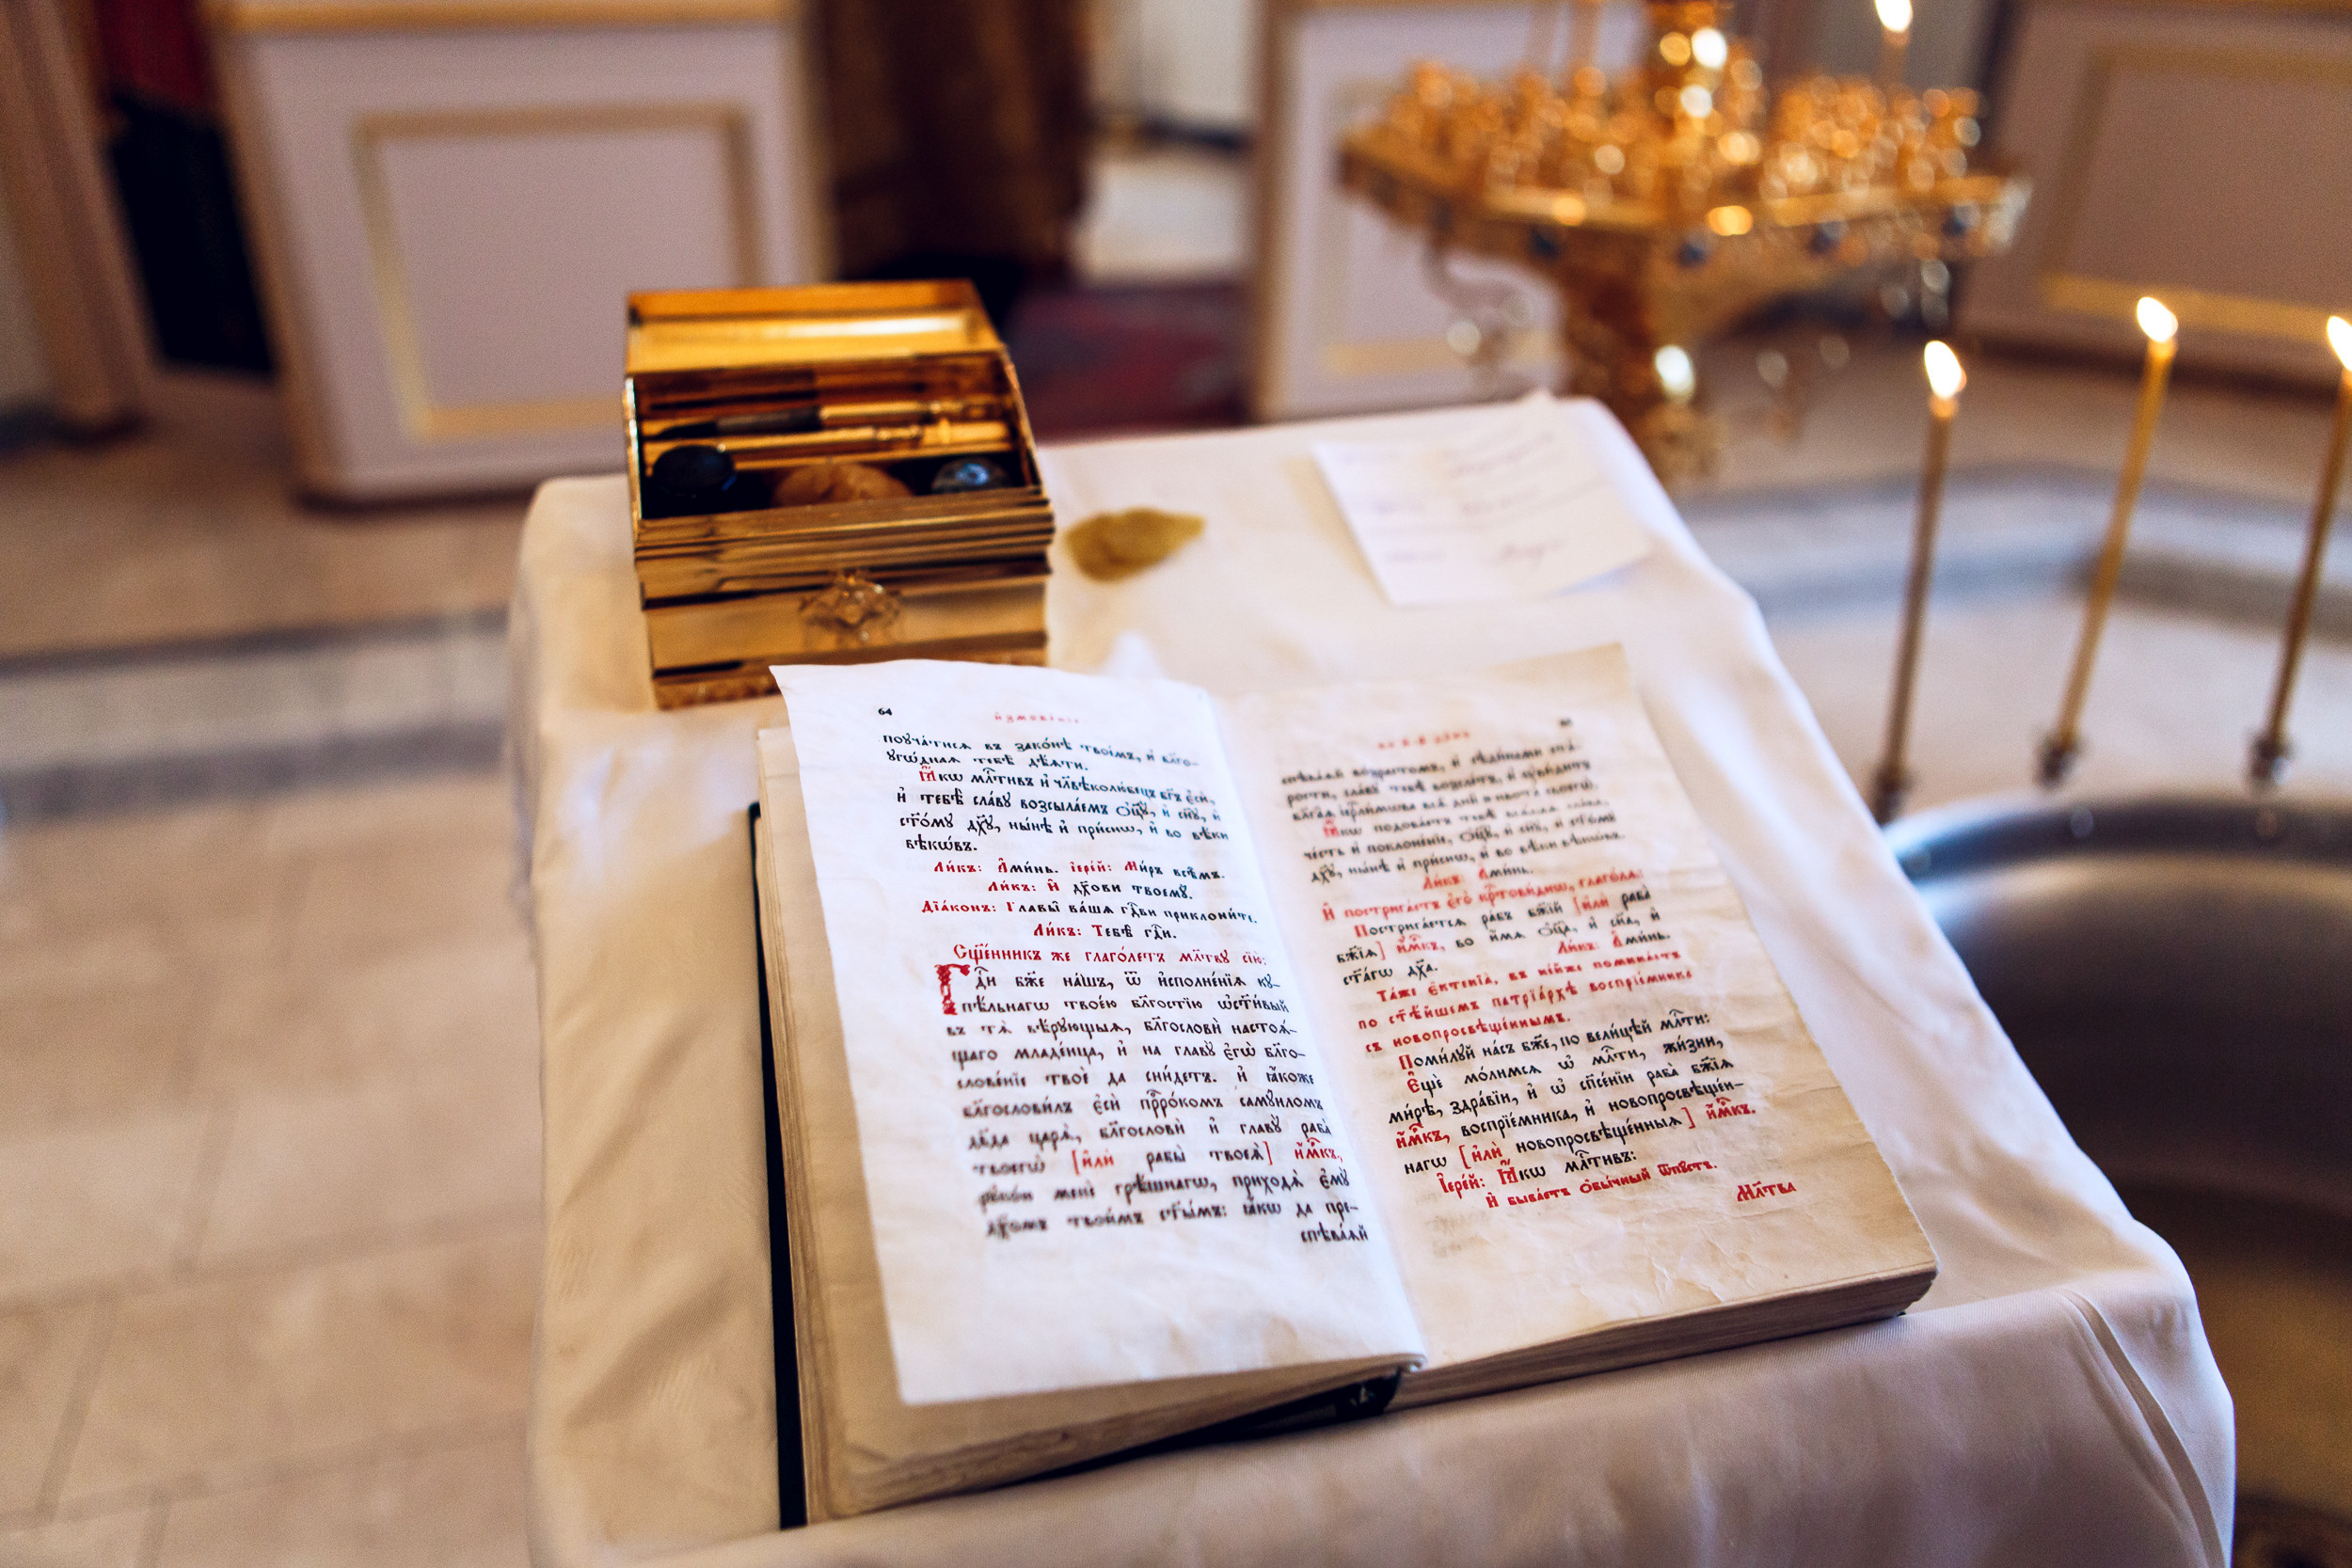 64
поуча́тисѧ въ зако́нѣ твое́мъ, и҆ бл҃го-
уго́днаѧ тебѣ̀ дѣ́ѧти.
Ꙗ҆́кѡ млⷭ҇тивъ и҆ чл҃вѣколю́бецъ бг҃ъ є҆сѝ,
и҆ тебѣ̀ сла́вꙋ возсыла́емъ ѻ҆ц҃ꙋ̀, и҆ сн҃ꙋ, и҆
ст҃о́мꙋ дх҃ꙋ, ны́нѣ и҆ при́снѡ, и҆ во вѣ́ки
вѣкѡ́въ.
Ли́къ: А҆ми́нь. і҆ере́й: Ми́ръ всѣ̑мъ.
Ли́къ: И҆ дх҃ови твоемꙋ̀.
Дїа́конъ: Главы̑ ва́шѧ гдⷭ҇ви приклони́те.
Ли́къ: Тебѣ̀ гдⷭ҇и.
Сщ҃е́нникъ же глаго́летъ мл҃твꙋ сїю̀:
Гдⷭ҇и бж҃е на́шъ, ѿ и҆сполне́нїѧ кꙋ-
пѣ́льнагѡ твое́ю бл҃гостїю ѡ҆ст҃и́вый
въ тѧ̀ вѣ́рꙋющыѧ, бл҃гословѝ настоѧ́-
щаго младе́нца, и҆ на главꙋ̀ є҆гѡ̀ бл҃го-
слове́нїе твоѐ да сни́детъ. и҆ ꙗ҆́коже
бл҃гослови́лъ є҆сѝ прⷪ҇ро́комъ самꙋи́ломъ
дв҃да царѧ̀, бл҃гословѝ и҆ главꙋ̀ раба̀
твоегѡ̀ [и҆лѝ рабы̀ твоеѧ̀] и҆́м҃къ,
рꙋко́ю менє̀ грѣ́шнагѡ, приходѧ̀ є҆мꙋ̀
дх҃омъ твои́мъ ст҃ы́мъ: ꙗ҆́кѡ да пре-
спѣва́ѧй
спѣва́ѧй во́зрастомъ, и҆ сѣди́нами ста́-
рости, сла́вꙋ тебѣ̀ возсле́тъ, и҆ ᲂу҆ви́дитъ
бл҃га́ѧ і҆ерⷭ҇ли́мова всѧ̑ дни̑ живота̀ своегѡ̀.
Ꙗ҆́кѡ подоба́етъ тебѣ̀ всѧ́каѧ сла́ва,
че́сть и҆ поклоне́нїе, ѻ҆ц҃ꙋ̀, и҆ сн҃ꙋ, и҆ ст҃о́мꙋ
дх҃ꙋ, ны́нѣ и҆ при́снѡ, и҆ во вѣ́ки вѣкѡ́въ.
Ли́къ: А҆ми́нь.
И҆ пострига́етъ є҆го̀ крⷭ҇тови́днѡ, глаго́лѧ:
Пострига́етсѧ ра́бъ бж҃їй [и҆лѝ раба̀
бж҃їѧ] и҆́м҃къ, во и҆́мѧ ѻ҆ц҃а̀, и҆ сн҃а, и҆
ст҃а́гѡ дх҃а. Ли́къ: А҆ми́нь.
Та́же є҆ктенїа̀, въ не́йже помина́етъ
по ст҃ѣ́йшемъ патрїа́рхѣ воспрїе́мника
съ новопросвѣще́ннымъ.
Поми́лꙋй на́съ бж҃е, по вели́цѣй млⷭ҇ти:
Є҆щѐ мо́лимсѧ ѡ҆ млⷭ҇ти, жи́зни,
ми́рѣ, здра́вїи, и҆ ѡ҆ сп҃се́нїи раба̀ бж҃їѧ
и҆́м҃къ, воспрїе́мника, и҆ новопросвѣще́н-
нагѡ [и҆лѝ новопросвѣще́нныѧ] и҆́м҃къ.
І҆ере́й: Ꙗ҆́кѡ млⷭ҇тивъ:
И҆ быва́етъ ѻ҆бы́чный ѿпꙋ́стъ.
Мл҃тва